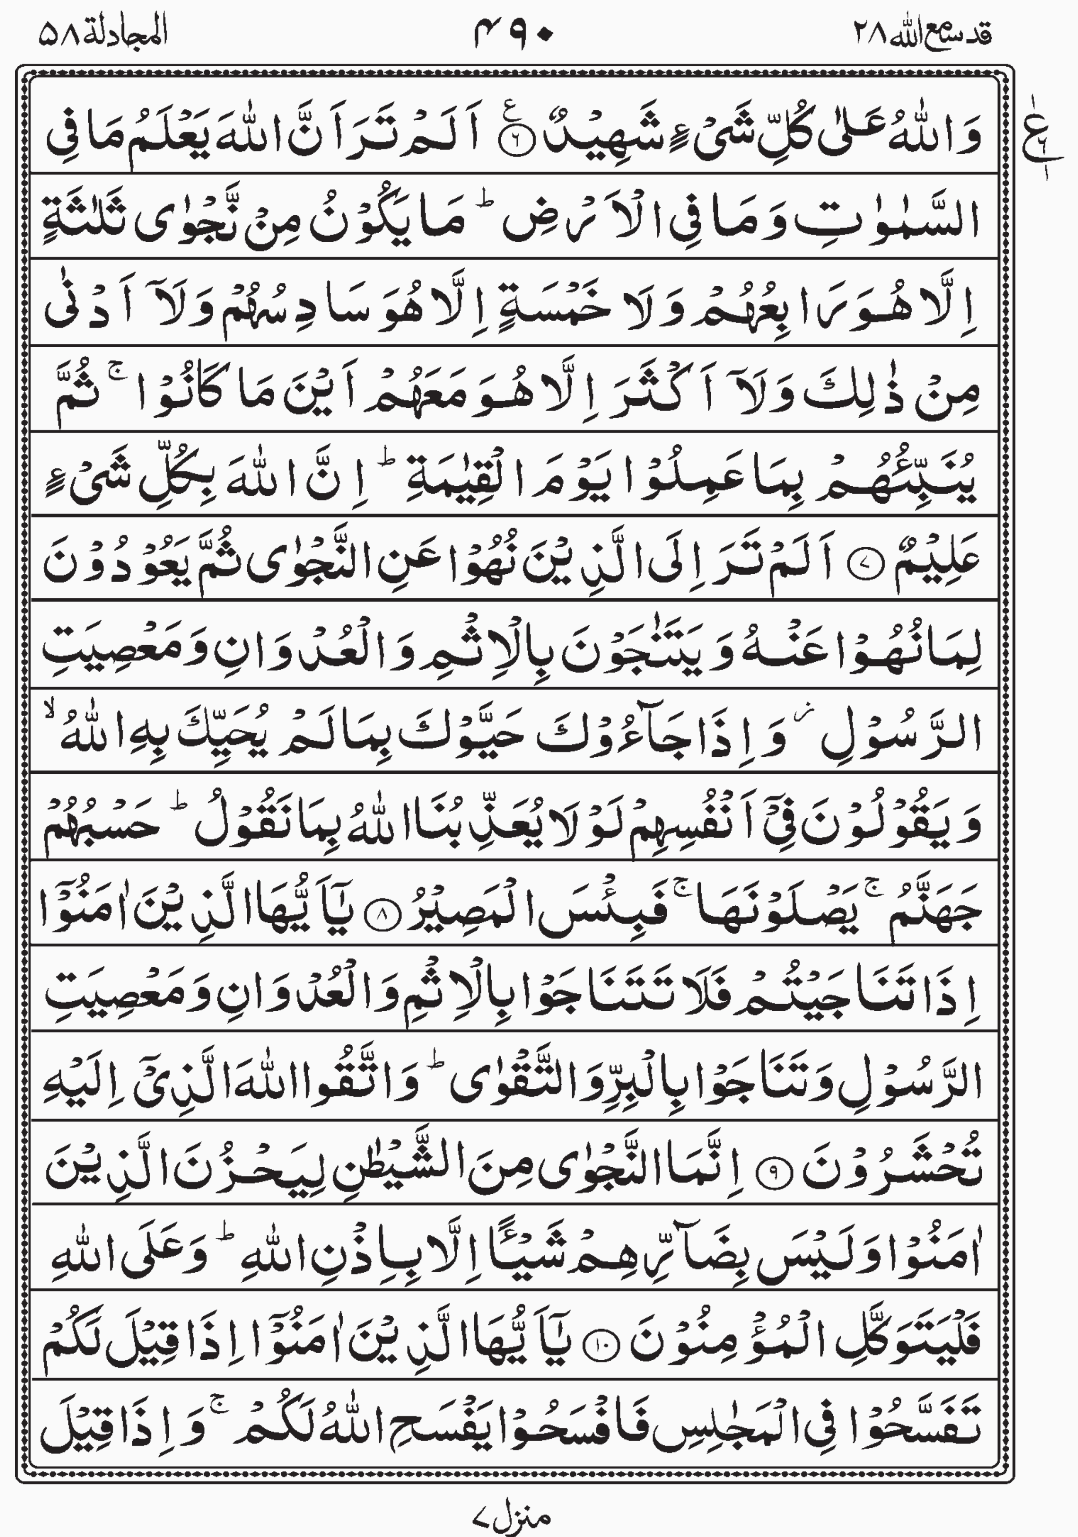 قد سمع الله ۲۸
۴۹۰
المجادلة ۵۸
وَاللّٰهُ عَلٰى كُلِّ شَىْءٍ شَهِيْدٌ ۶ ع اَلَمْ تَرَ اَنَّ اللّٰهَ يَعْلَمُ مَا فِى
ع ۶ ۱ ۱
السَّمٰوٰتِ وَمَا فِى الْاَرْضِ ؕ مَا يَكُوْنُ مِنْ نَّجْوٰى ثَلٰثَةٍ
اِلَّا هُوَ رَابِعُهُمْ وَلَا خَمْسَةٍ اِلَّا هُوَ سَادِسُهُمْ وَلَاۤ اَدْنٰى
مِنْ ذٰلِكَ وَلَاۤ اَكْثَرَ اِلَّا هُوَ مَعَهُمْ اَيْنَ مَا كَانُوْا ۚ ثُمَّ
يُنَبِّئُهُمْ بِمَا عَمِلُوْا يَوْمَ الْقِيٰمَةِ ؕ اِنَّ اللّٰهَ بِكُلِّ شَىْءٍ
عَلِيْمٌ ۷ اَلَمْ تَرَ اِلَى الَّذِيْنَ نُهُوْا عَنِ النَّجْوٰى ثُمَّ يَعُوْدُوْنَ
لِمَا نُهُوْا عَنْهُ وَيَتَنٰجَوْنَ بِالْاِثْمِ وَالْعُدْوَانِ وَمَعْصِيَتِ
الرَّسُوْلِ ز وَاِذَا جَآءُوْكَ حَيَّوْكَ بِمَا لَمْ يُحَيِّكَ بِهِ اللّٰهُ ۙ
وَيَقُوْلُوْنَ فِىْۤ اَنْفُسِهِمْ لَوْلَا يُعَذِّبُنَا اللّٰهُ بِمَا نَقُوْلُ ؕ حَسْبُهُمْ
جَهَنَّمُ ۚ يَصْلَوْنَهَا ۚ فَبِئْسَ الْمَصِيْرُ ۸ يٰۤاَيُّهَا الَّذِيْنَ اٰمَنُوْۤا
اِذَا تَنَاجَيْتُمْ فَلَا تَتَنَاجَوْا بِالْاِثْمِ وَالْعُدْوَانِ وَمَعْصِيَتِ
الرَّسُوْلِ وَتَنَاجَوْا بِالْبِرِّ وَالتَّقْوٰى ؕ وَاتَّقُوا اللّٰهَ الَّذِىْۤ اِلَيْهِ
تُحْشَرُوْنَ ۹ اِنَّمَا النَّجْوٰى مِنَ الشَّيْطٰنِ لِيَحْزُنَ الَّذِيْنَ
اٰمَنُوْا وَلَيْسَ بِضَآرِّهِمْ شَيْئًا اِلَّا بِاِذْنِ اللّٰهِ ؕ وَعَلَى اللّٰهِ
فَلْيَتَوَكَّلِ الْمُؤْمِنُوْنَ ۱۰ يٰۤاَيُّهَا الَّذِيْنَ اٰمَنُوْۤا اِذَا قِيْلَ لَكُمْ
تَفَسَّحُوْا فِى الْمَجٰلِسِ فَافْسَحُوْا يَفْسَحِ اللّٰهُ لَكُمْ ۚ وَاِذَا قِيْلَ
منزل ۷